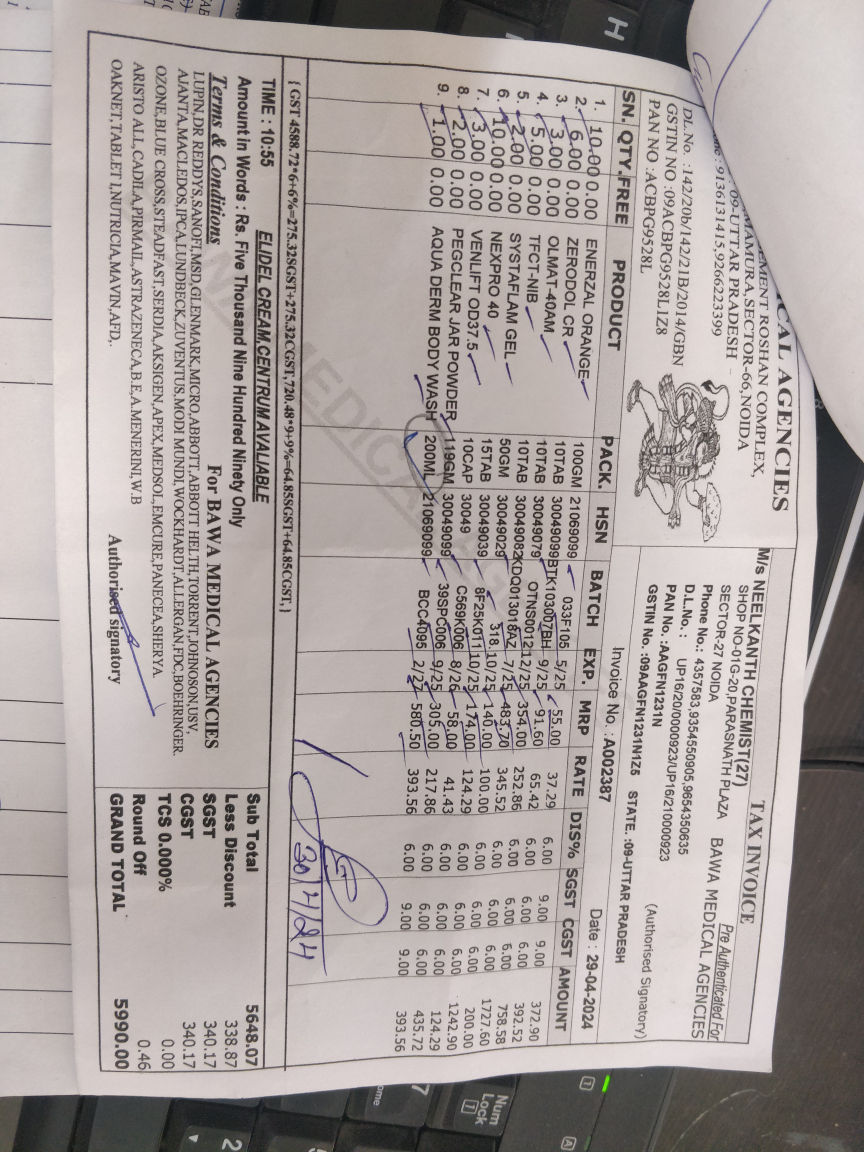 ICAL AGENCIES
EMENT ROSHAN COMPLEX,
MAMURA,SECTOR-66,NOIDA
09-UTTAR PRADESH
: 9136131415,9266223399
DL.No. :142/20b/142/21B/2014/GBN
GSTIN NO :09ACBPG9528L1Z8
PAN NO :ACBPG9528L
TAX INVOICE
Pre Authenticated For
M/s NEELKANTH CHEMIST(27)
BAWA MEDICAL AGENCIES
SHOP NO-01G-20,PARASNATH PLAZA
SECTOR-27 NOIDA
Phone No.: 4357583,9354550905,9654350635
D.L.No. : UP16/20/0000923/UP16/210000923
PAN No. :AAGFN1231N
(Authorised Signatory)
GSTIN No. :09AAGFN1231N1Z5 STATE. :09-UTTAR PRADESH
Invoice No. :A002387 Date : 29-04-2024
SN. QTY.FREE PRODUCT PACK. HSN BATCH EXP. MRP RATE DIS% SGST CGST AMOUNT
1. 10.00 0.00 ENERZAL ORANGE 100GM 21069099 033F105 5/25 55.00 37.29 6.00 9.00 9.00 372.90
2. 6.00 0.00 ZERODOL CR 10TAB 30049099 BTK103037BH 9/25 91.60 65.42 6.00 6.00 6.00 392.52
3. 3.00 0.00 OLMAT-40AM 10TAB 30049079 OTNS0012 12/25 354.00 252.86 6.00 6.00 6.00 758.58
4. 5.00 0.00 TFCT-NIB 10TAB 30049082 KDQ013018AZ 7/25 483.70 345.52 6.00 6.00 6.00 1727.60
5. 2.00 0.00 SYSTAFLAM GEL 50GM 30049029 318 10/25 140.00 100.00 6.00 6.00 6.00 200.00
6. 10.00 0.00 NEXPRO 40 15TAB 30049039 8F25K011 10/25 174.00 124.29 6.00 6.00 6.00 1242.90
7. 3.00 0.00 VENLIFT OD37.5 10CAP 30049 C569K006 8/26 58.00 41.43 6.00 6.00 6.00 124.29
8. 2.00 0.00 PEGCLEAR JAR POWDER 119GM 30049099 39SPC006 9/25 305.00 217.86 6.00 6.00 6.00 435.72
9. 1.00 0.00 AQUA DERM BODY WASH 200ML 21069099 BCC4095 2/27 580.50 393.56 6.00 9.00 9.00 393.56
30/4/24
{GST 4588.72*6+6%=275.32SGST+275.32CGST,720.48*9+9%=64.85SGST+64.85CGST,}
TIME : 10:55 ELIDEL CREAM,CENTRUM AVALIABLE
Amount in Words : Rs. Five Thousand Nine Hundred Ninety Only
Terms & Conditions For BAWA MEDICAL AGENCIES
LUPIN,DR REDDYS,SANOFI,MSD,GLENMARK,MICRO,ABBOTT,ABBOTT HELTH,TORRENT,JOHNOSON,USV,
AJANTA,MACLEDOS,IPCA,LUNDBECK,ZUVENTUS,MODI MUNDI,WOCKHARDT,ALLERGAN,FDC,BOEHRINGER
OZONE,BLUE CROSS,STEADFAST,SERDIA,AKSIGEN,APEX,MEDSOL,EMCURE,PANECEA,SHERYA
ARISTO ALL,CADILA,PIRMAIL,ASTRAZENECA,B.E,A.MENERINI,W.B
OAKNET,TABLET I,NUTRICIA,MAVIN,AFD,.
Authorised signatory
Sub Total 5648.07
Less Discount 338.87
SGST 340.17
CGST 340.17
TCS 0.000% 0.00
Round Off 0.46
GRAND TOTAL 5990.00
H
Num
Lock
7
2